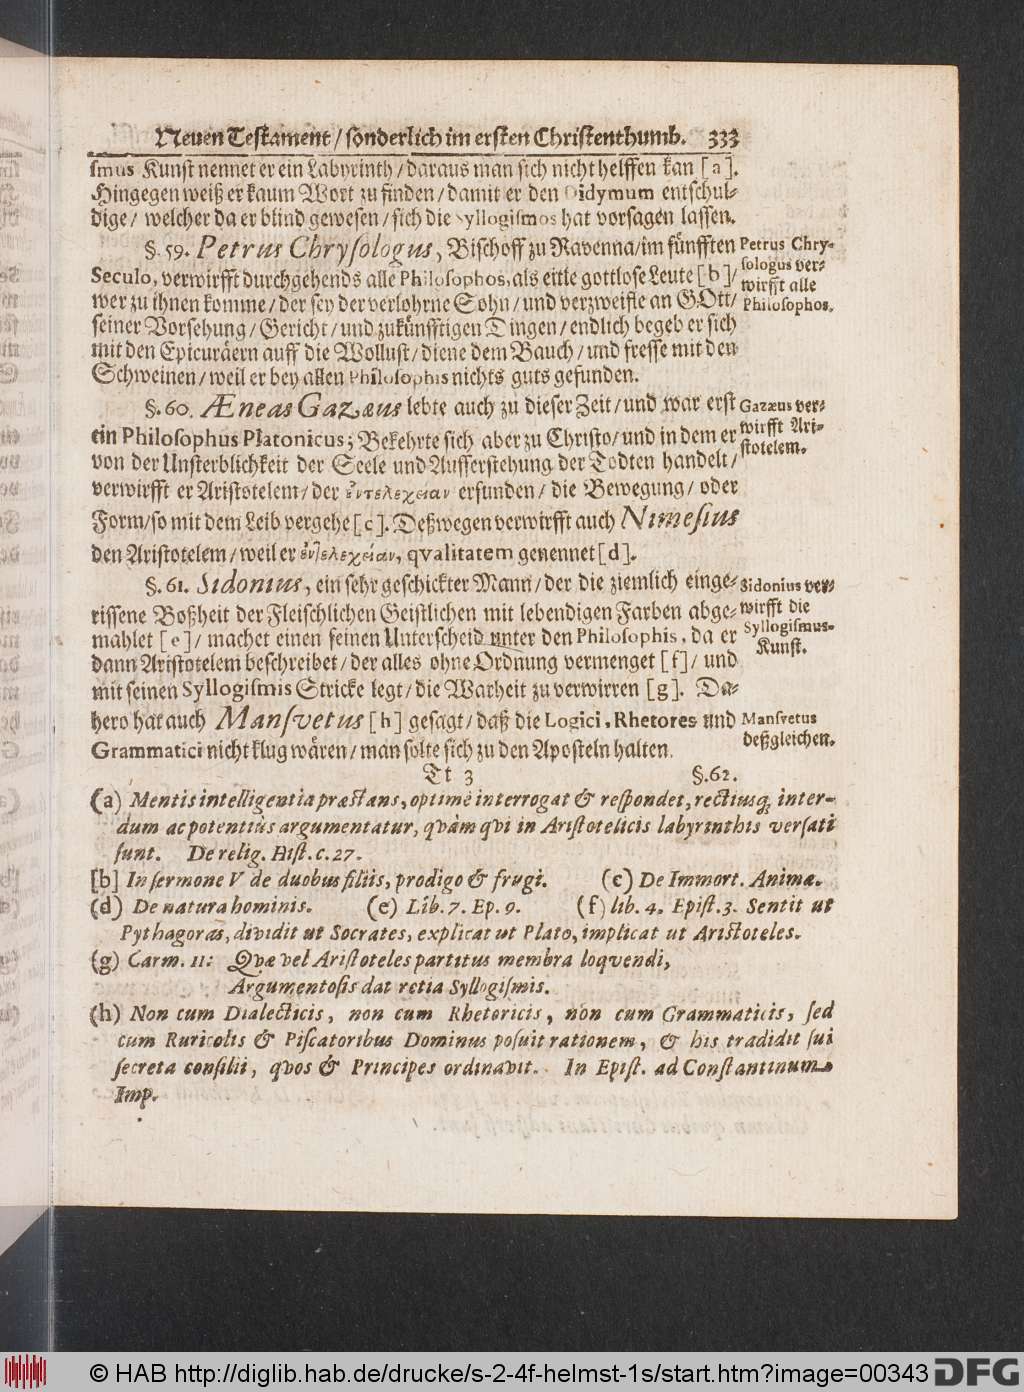 Neuen Testament / sonderlich im ersten Christenthumb. 333
ſmus Kunst nennet er ein Labyrinth / daraus man sich nicht helffen kan [a].
Hingegen weiß er kaum Wort zu finden / damit er den Didymum entschul-
dige / welcher da er blind gewesen / sich die Syllogiſmos hat vorsagen lassen.
§. 59. Petrus Chryſologus, Bischoff zu Ravenna / im fünfften
Seculo, verwirfft durchgehends alle Philoſophos, als eitle gottlose Leute [b] /
wer zu ihnen komme / der sey der verlohrne Sohn / und verzweifle an GOtt /
seiner Vorsehung / Gericht / und zukünfftigen Dingen / endlich begeb er sich
mit den Epicuräern auff die Wollust / diene dem Bauch / und fresse mit den
Schweinen / weil er bey allen Philoſophis nichts guts gefunden.
Petrus Chry-
ſologus ver-
wirfft alle
Philoſophos.
§. 60. Æneas Gazæus lebte auch zu dieser Zeit / und war erst
ein Philoſophus Platonicus; Bekehrte sich aber zu Christo / und in dem er
von der Unsterblichkeit der Seele und Aufferstehung der Todten handelt /
verwirfft er Aristotelem / der ἐντελεχειαν erfunden / die Bewegung / oder
Form / so mit dem Leib vergehe [c]. Deßwegen verwirfft auch Nimeſius
den Aristotelem / weil er ἐντελεχείαν, qvalitatem genennet [d].
Gazæus ver-
wirfft Ari-
stotelem.
§. 61. Sidonius, ein sehr geschickter Mann / der die ziemlich einge-
rissene Boßheit der Fleischlichen Geistlichen mit lebendigen Farben abge-
mahlet [e] / machet einen feinen Unterscheid unter den Philoſophis, da er
dann Aristotelem beschreibet / der alles ohne Ordnung vermenget [f] / und
mit seinen Syllogiſmis Stricke legt / die Warheit zu verwirren [g]. Da-
hero hat auch Manſvetus [h] gesagt / daß die Logici, Rhetores und
Grammatici nicht klug wären / man solte sich zu den Aposteln halten.
Sidonius ver-
wirfft die
Syllogiſmus-
Kunst.
Manſvetus
deßgleichen.
Tt 3 §. 62.
(a) Mentis intelligentia præstans, optimè interrogat & reſpondet, rectiusq; inter-
dum ac potentiùs argumentatur, qvàm qvi in Ariſtotelicis labyrinthis verſati
ſunt. De relig. Hiſt. c. 27.
[b] In ſermone V de duobus filiis, prodigo & frugi. (c) De Immort. Animæ.
(d) De natura hominis. (e) Lib. 7. Ep. 9. (f) lib. 4. Epiſt. 3. Sentit ut
Pythagoras, dividit ut Socrates, explicat ut Plato, implicat ut Ariſtoteles.
(g) Carm. 11: Qvæ vel Ariſtoteles partitus membra loqvendi,
Argumentoſis dat retia Syllogiſmis.
(h) Non cum Dialecticis, non cum Rhetoricis, non cum Grammaticis, ſed
cum Ruricolis & Piſcatoribus Dominus poſuit rationem, & his tradidit ſui
ſecreta conſilii, qvos & Principes ordinavit. In Epiſt. ad Conſtantinum
Imp.
© HAB http://diglib.hab.de/drucke/s-2-4f-helmst-1s/start.htm?image=00343
DFG